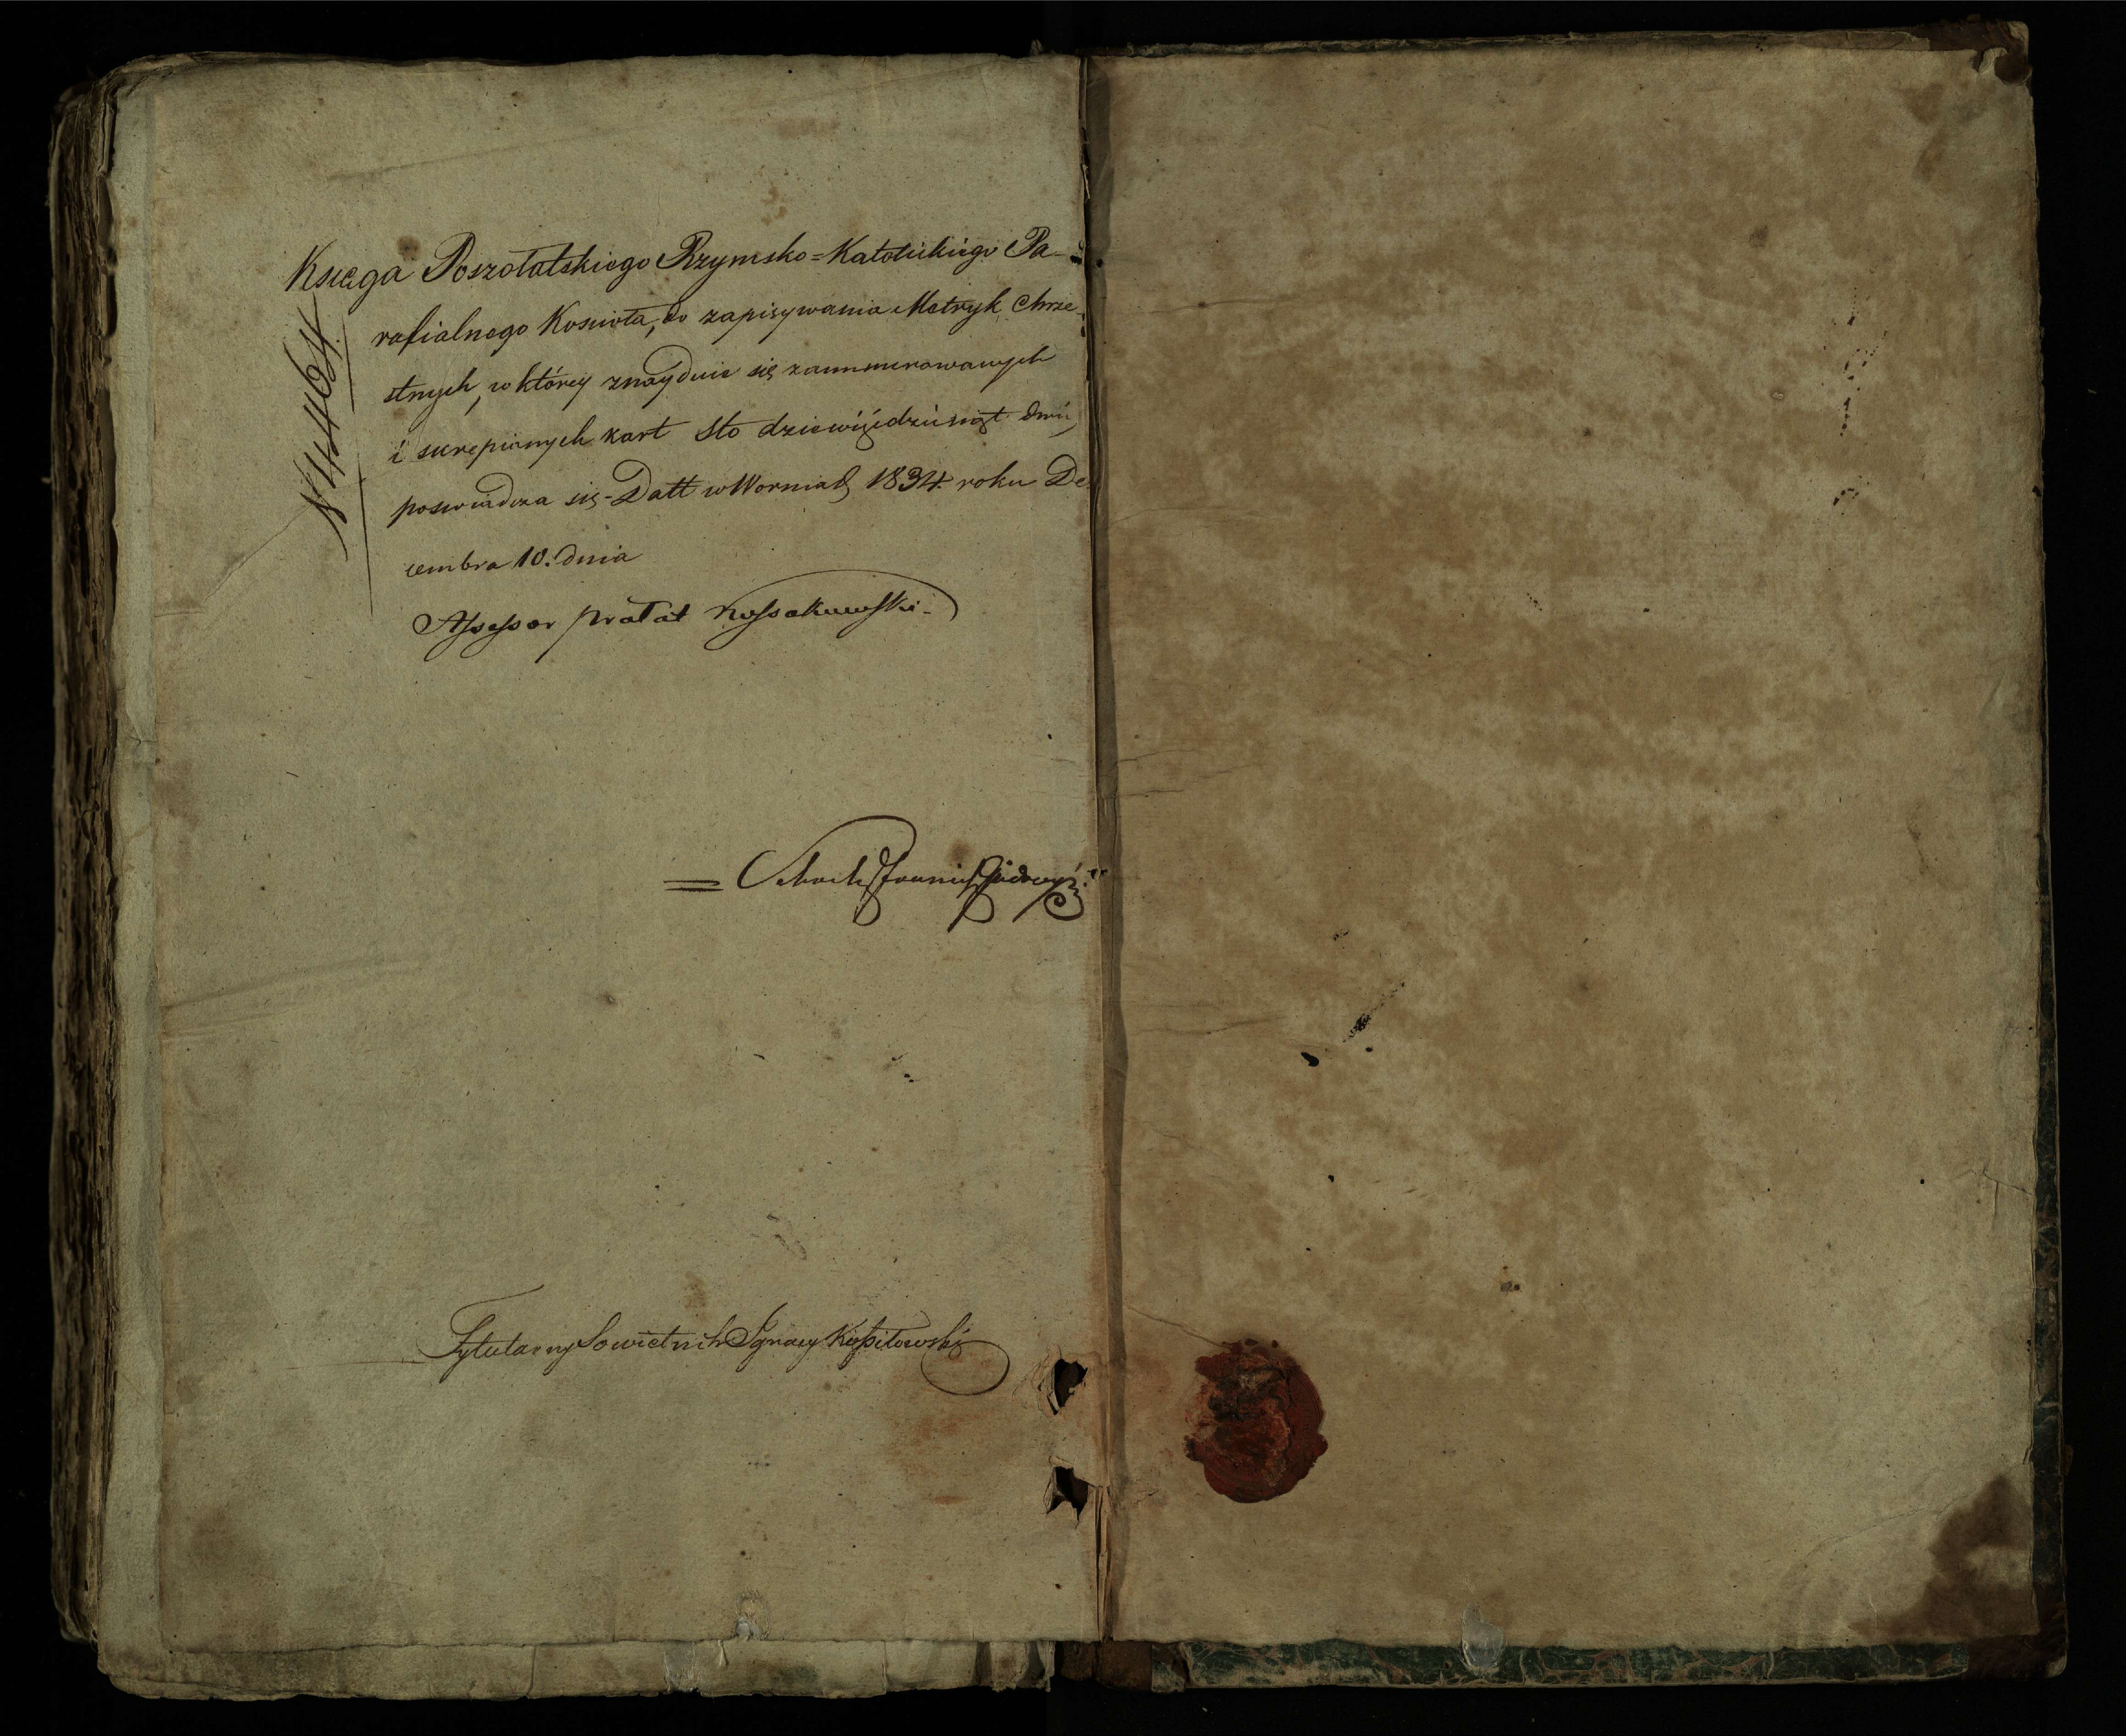 Ksiega Poszołatskiego Rzymsko=Katolickiego Pa-
rafialnego Koscioła, do zapisywania Metryk Chrze-
stnych, w którey znayduie się zanumerowanych
i skrepionych kart sto dziewięćdziesiąt dwie,
poswiadcza się - Datt w Worniach 1834. roku De-
cembra 10. dnia
N 4464.
Assessor prałat Kossakowski
Sekretarz
Tytularny Sowietnik Ignacy